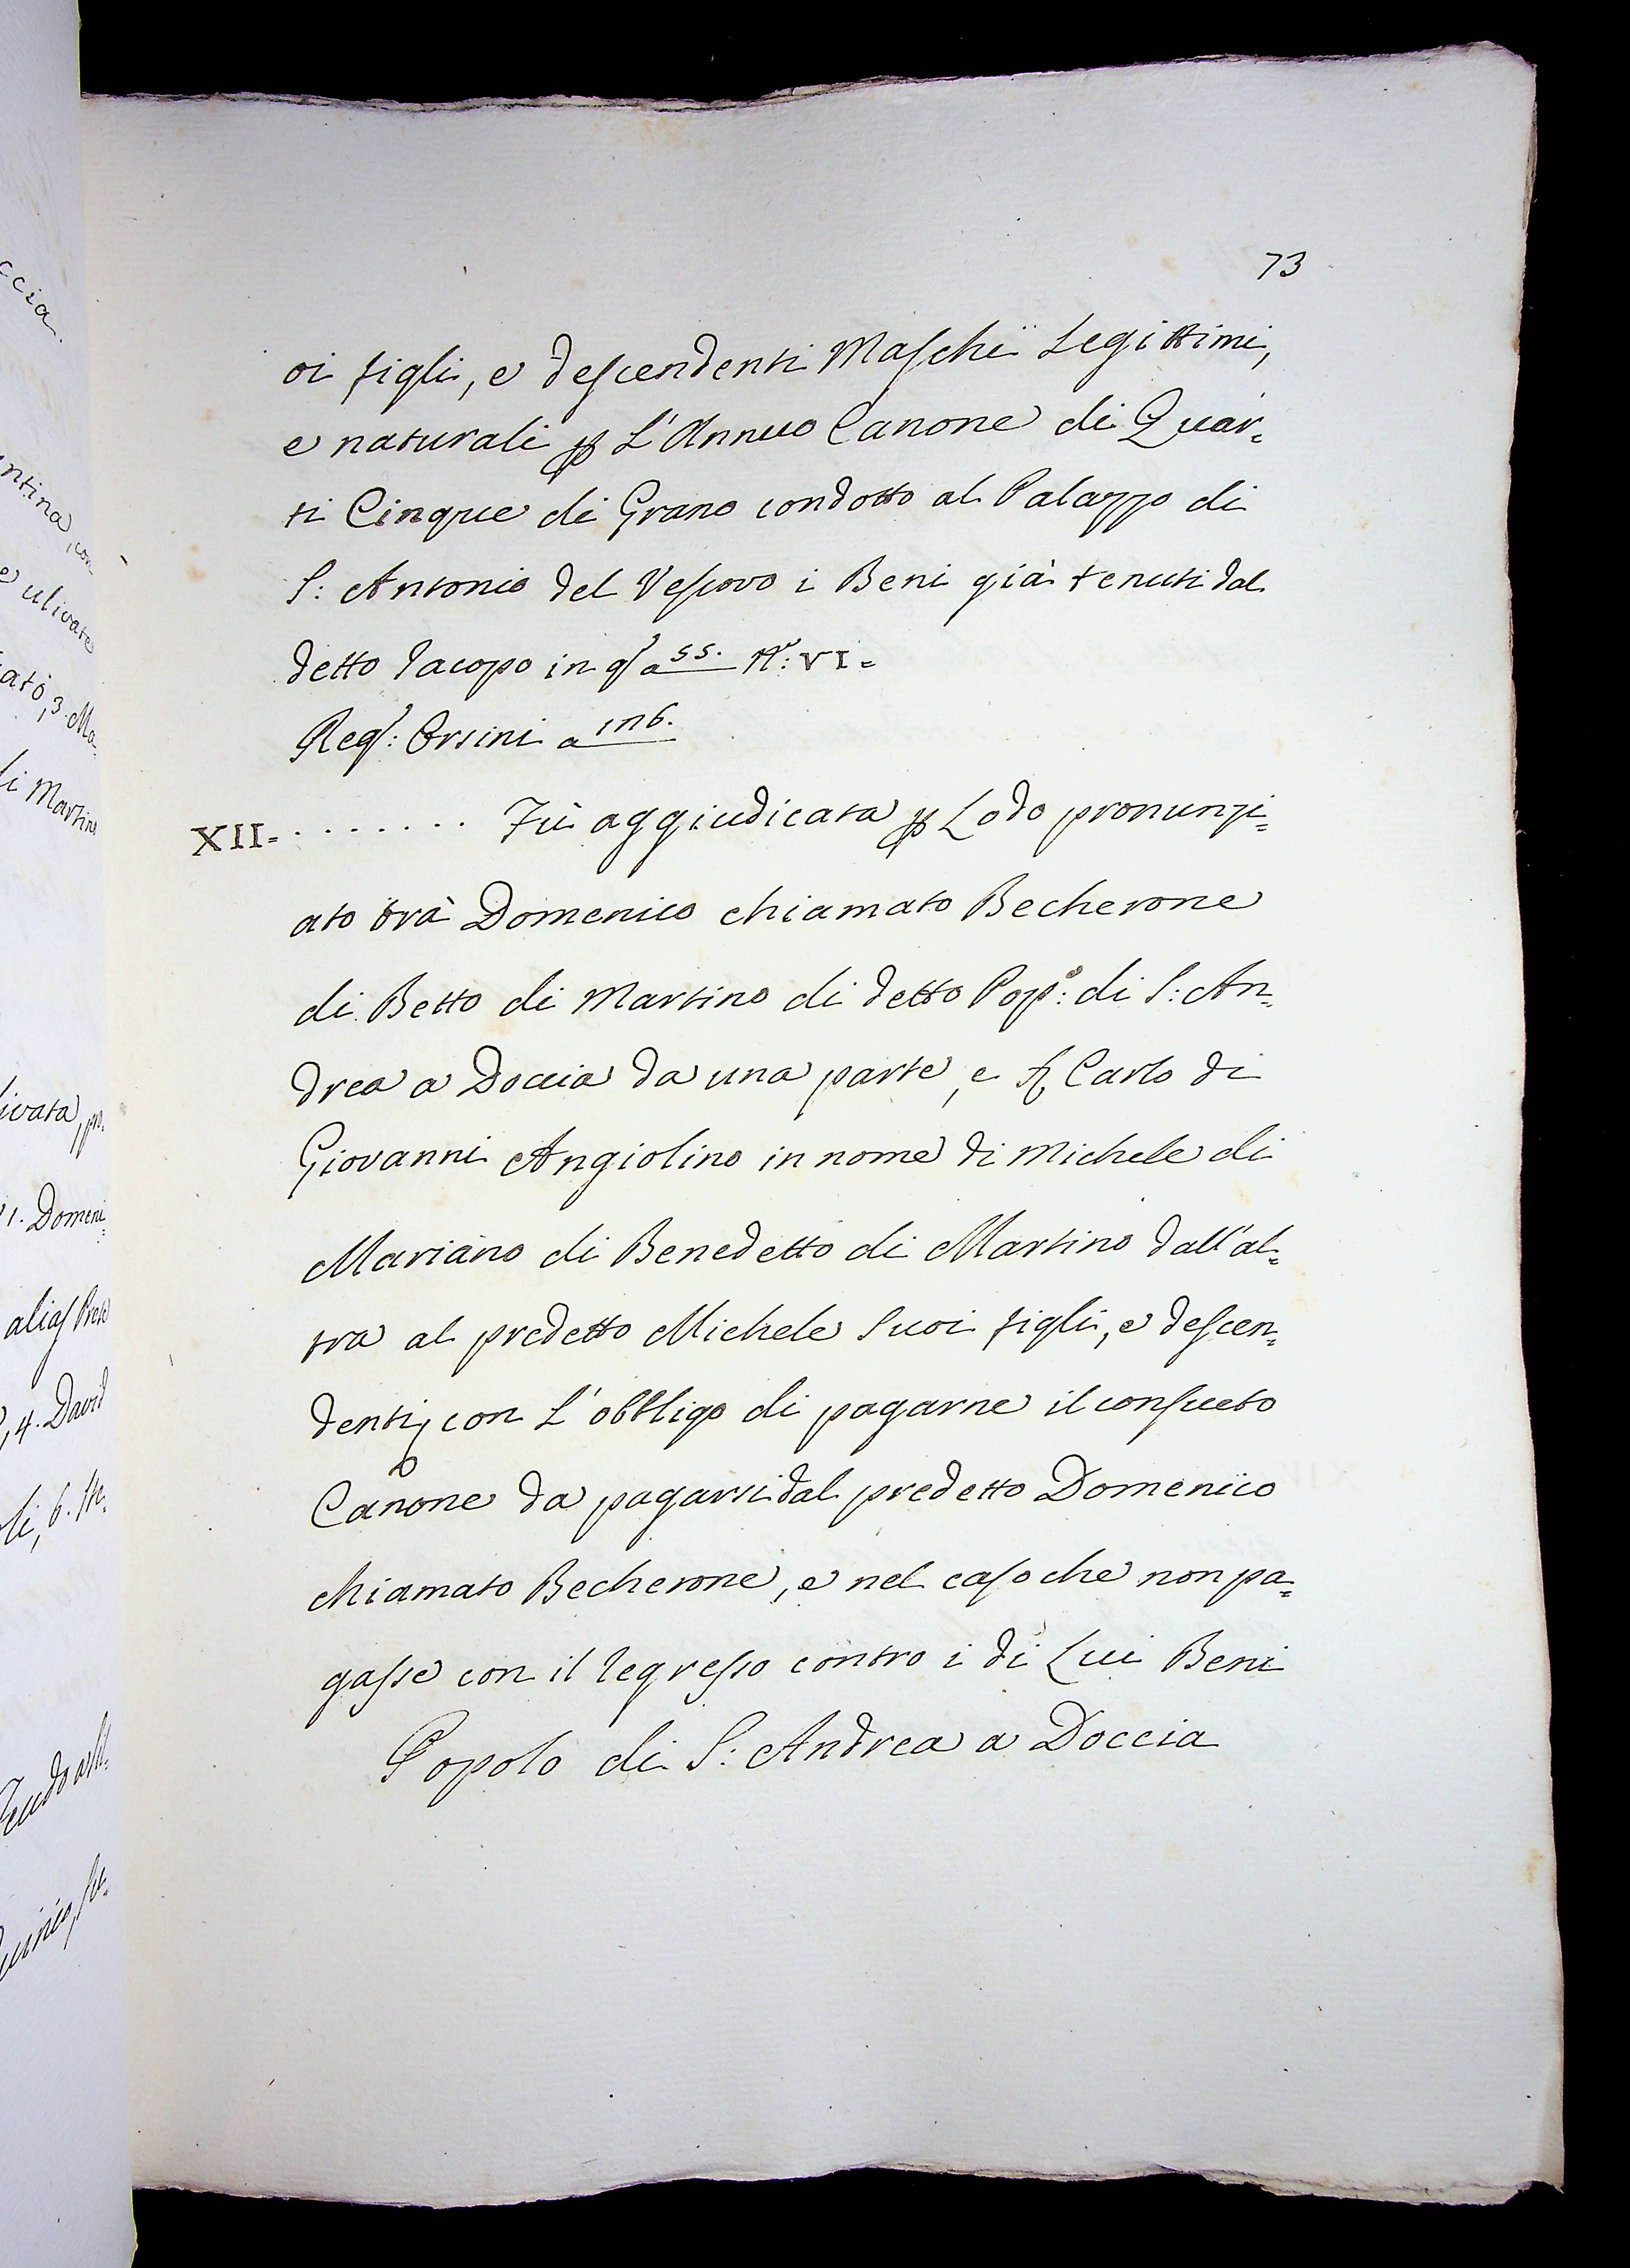 73
oi figli, e descendenti Maschi Legittimi,
e naturali p L'Annuo Canone di Quar=
ti Cinque di Grano condotto al Palazzo di
S: Antonio del Vescovo i Beni già tenuti dal
detto Iacopo in q.º a 55. N.º: VI=
Reg.º: Orsini a 176.
XII= ....... Fù aggiudicata p Lodo pronunzi=
ato trà Domenico chiamato Becherone
di Betto di Martino di detto Pop.º: di S: An=
drea a Doccia da una parte, e Carlo di
Giovanni Angiolino in nome di Michele di
Mariano di Benedetto di Martino dall'al=
tra al predetto Michele Suoi figli, e descen=
denti, con L'obbligo di pagarne il consueto
Canone da pagarsi dal predetto Domenico
chiamato Becherone, e nel caso che non pa=
gasse con il regresso contro i di Lui Beni
Popolo di S: Andrea a Doccia
ccia.
ntina, con
e ulivate
ato, 3. Ma=
di Martino
livata, po.
1. Domeni=
alias Prete
, 4. David
li, 6. Ste=